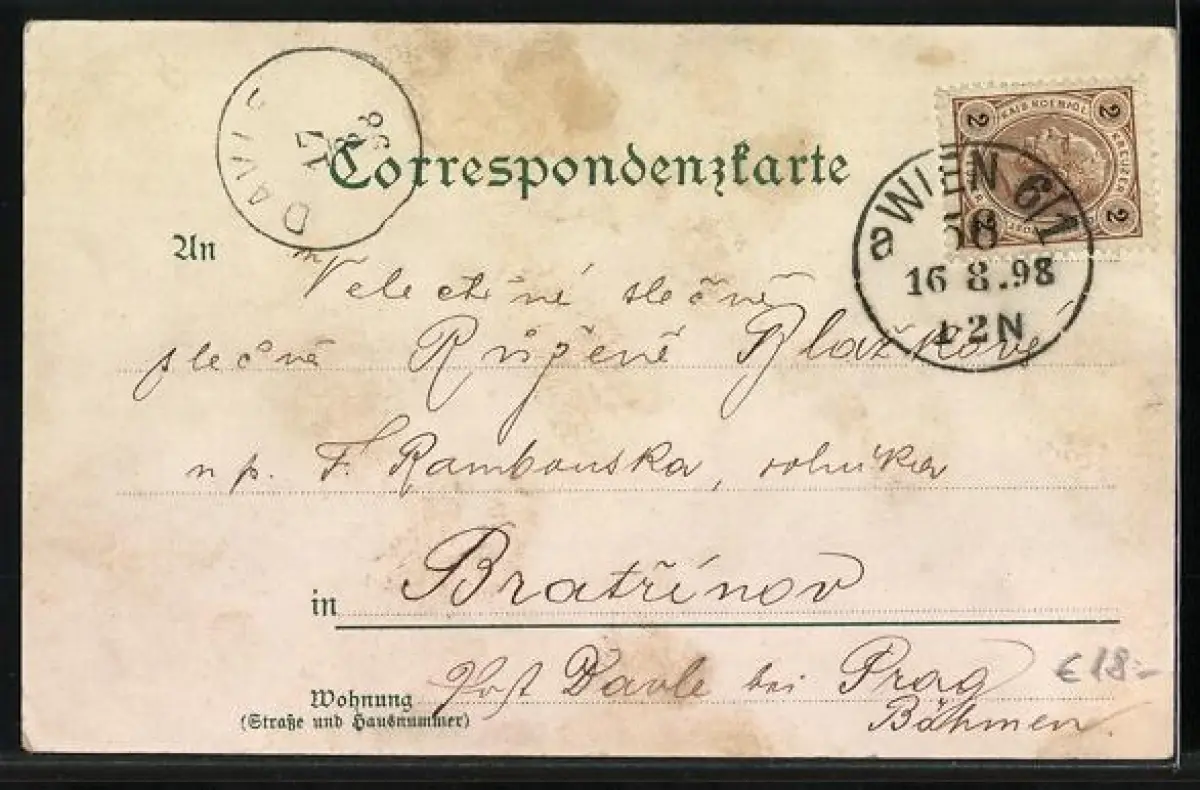 DAVLE
17 8 98
Correspondenzkarte
2 KAIS. KOENIGL. 2
KREUZER
2 2
a WIEN 6/1
56
16 8.98
12N
An
Velectěné slečně
slečně Růženě Blažkové
n p. F. Rambouska, rolníka
in Bratřínov
Wohnung Post Davle bei Prag
(Straße und Hausnummer)
Böhmen.
€ 18.-